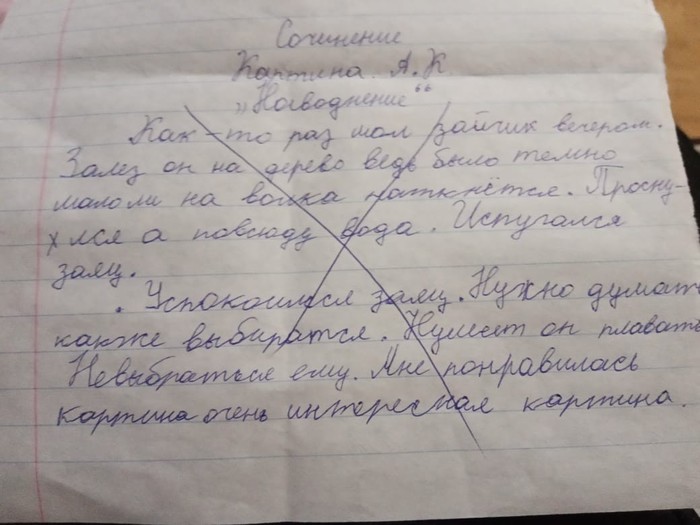 Сочинение
Картина. А.К.
„Новоднение“
Как-то раз шол зайчик вечером.
Залез он на дерево ведь было темно
малоли на волка наткнётся. Просну-
лся а повсюду вода. Испугался
заяц.
Успокоился заяц. Нужно думать
какже выбиратся. Неумеет он плавать
Невыбраться ему. Мне понравилась
картина очень интересная картина.